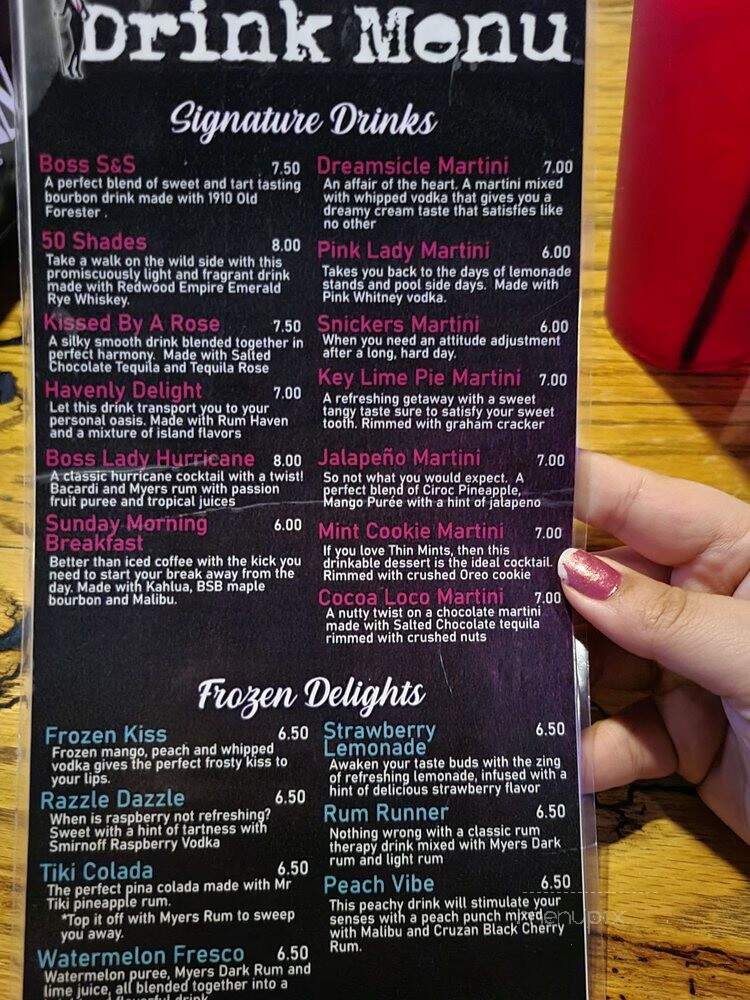 Drink Menu
Signature Drinks
Boss S&S 7.50
A perfect blend of sweet and tart tasting
bourbon drink made with 1910 Old
Forester .
50 Shades 8.00
Take a walk on the wild side with this
promiscuously light and fragrant drink
made with Redwood Empire Emerald
Rye Whiskey.
Kissed By A Rose 7.50
A silky smooth drink blended together in
perfect harmony. Made with Salted
Chocolate Tequila and Tequila Rose
Havenly Delight 7.00
Let this drink transport you to your
personal oasis. Made with Rum Haven
and a mixture of island flavors
Boss Lady Hurricane 8.00
A classic hurricane cocktail with a twist!
Bacardi and Myers rum with passion
fruit puree and tropical juices
Sunday Morning 6.00
Breakfast
Better than iced coffee with the kick you
need to start your break away from the
day. Made with Kahlua, BSB maple
bourbon and Malibu.
Dreamsicle Martini 7.00
An affair of the heart. A martini mixed
with whipped vodka that gives you a
dreamy cream taste that satisfies like
no other
Pink Lady Martini 6.00
Takes you back to the days of lemonade
stands and pool side days. Made with
Pink Whitney vodka.
Snickers Martini 6.00
When you need an attitude adjustment
after a long, hard day.
Key Lime Pie Martini 7.00
A refreshing getaway with a sweet
tangy taste sure to satisfy your sweet
tooth. Rimmed with graham cracker
Jalapeño Martini 7.00
So not what you would expect. A
perfect blend of Ciroc Pineapple,
Mango Purée with a hint of jalapeno
Mint Cookie Martini 7.00
If you love Thin Mints, then this
drinkable dessert is the ideal cocktail.
Rimmed with crushed Oreo cookie
Cocoa Loco Martini 7.00
A nutty twist on a chocolate martini
made with Salted Chocolate tequila
rimmed with crushed nuts
Frozen Delights
Frozen Kiss 6.50
Frozen mango, peach and whipped
vodka gives the perfect frosty kiss to
your lips.
Razzle Dazzle 6.50
When is raspberry not refreshing?
Sweet with a hint of tartness with
Smirnoff Raspberry Vodka
Tiki Colada 6.50
The perfect pina colada made with Mr
Tiki pineapple rum.
*Top it off with Myers Rum to sweep
you away.
Watermelon Fresco 6.50
Watermelon puree, Myers Dark Rum and
lime juice, all blended together into a
drink
Strawberry 6.50
Lemonade
Awaken your taste buds with the zing
of refreshing lemonade, infused with a
hint of delicious strawberry flavor
Rum Runner 6.50
Nothing wrong with a classic rum
therapy drink mixed with Myers Dark
rum and light rum
Peach Vibe 6.50
This peachy drink will stimulate your
senses with a peach punch mixed
with Malibu and Cruzan Black Cherry
Rum.
menupix